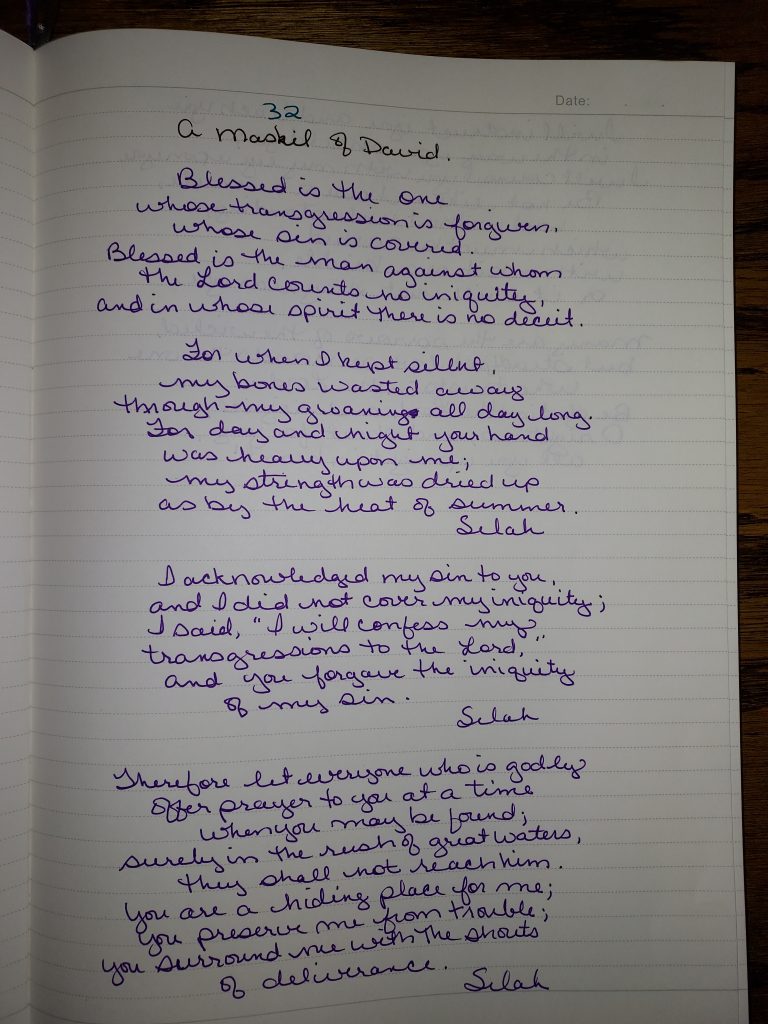 Date:
32
A Maskil of David.
Blessed is the one
whose transgression is forgiven,
whose sin is covered.
Blessed is the man against whom
the Lord counts no iniquity,
and in whose spirit there is no deceit.
For when I kept silent,
my bones wasted away
through my groaning all day long.
For day and night your hand
was heavy upon me;
my strength was dried up
as by the heat of summer.
Selah
I acknowledged my sin to you,
and I did not cover my iniquity;
I said, "I will confess my
transgressions to the Lord,"
and you forgave the iniquity
of my sin.
Selah
Therefore let everyone who is godly
offer prayer to you at a time
when you may be found;
surely in the rush of great waters,
they shall not reach him.
You are a hiding place for me;
you preserve me from trouble;
you surround me with the shouts
of deliverance.
Selah